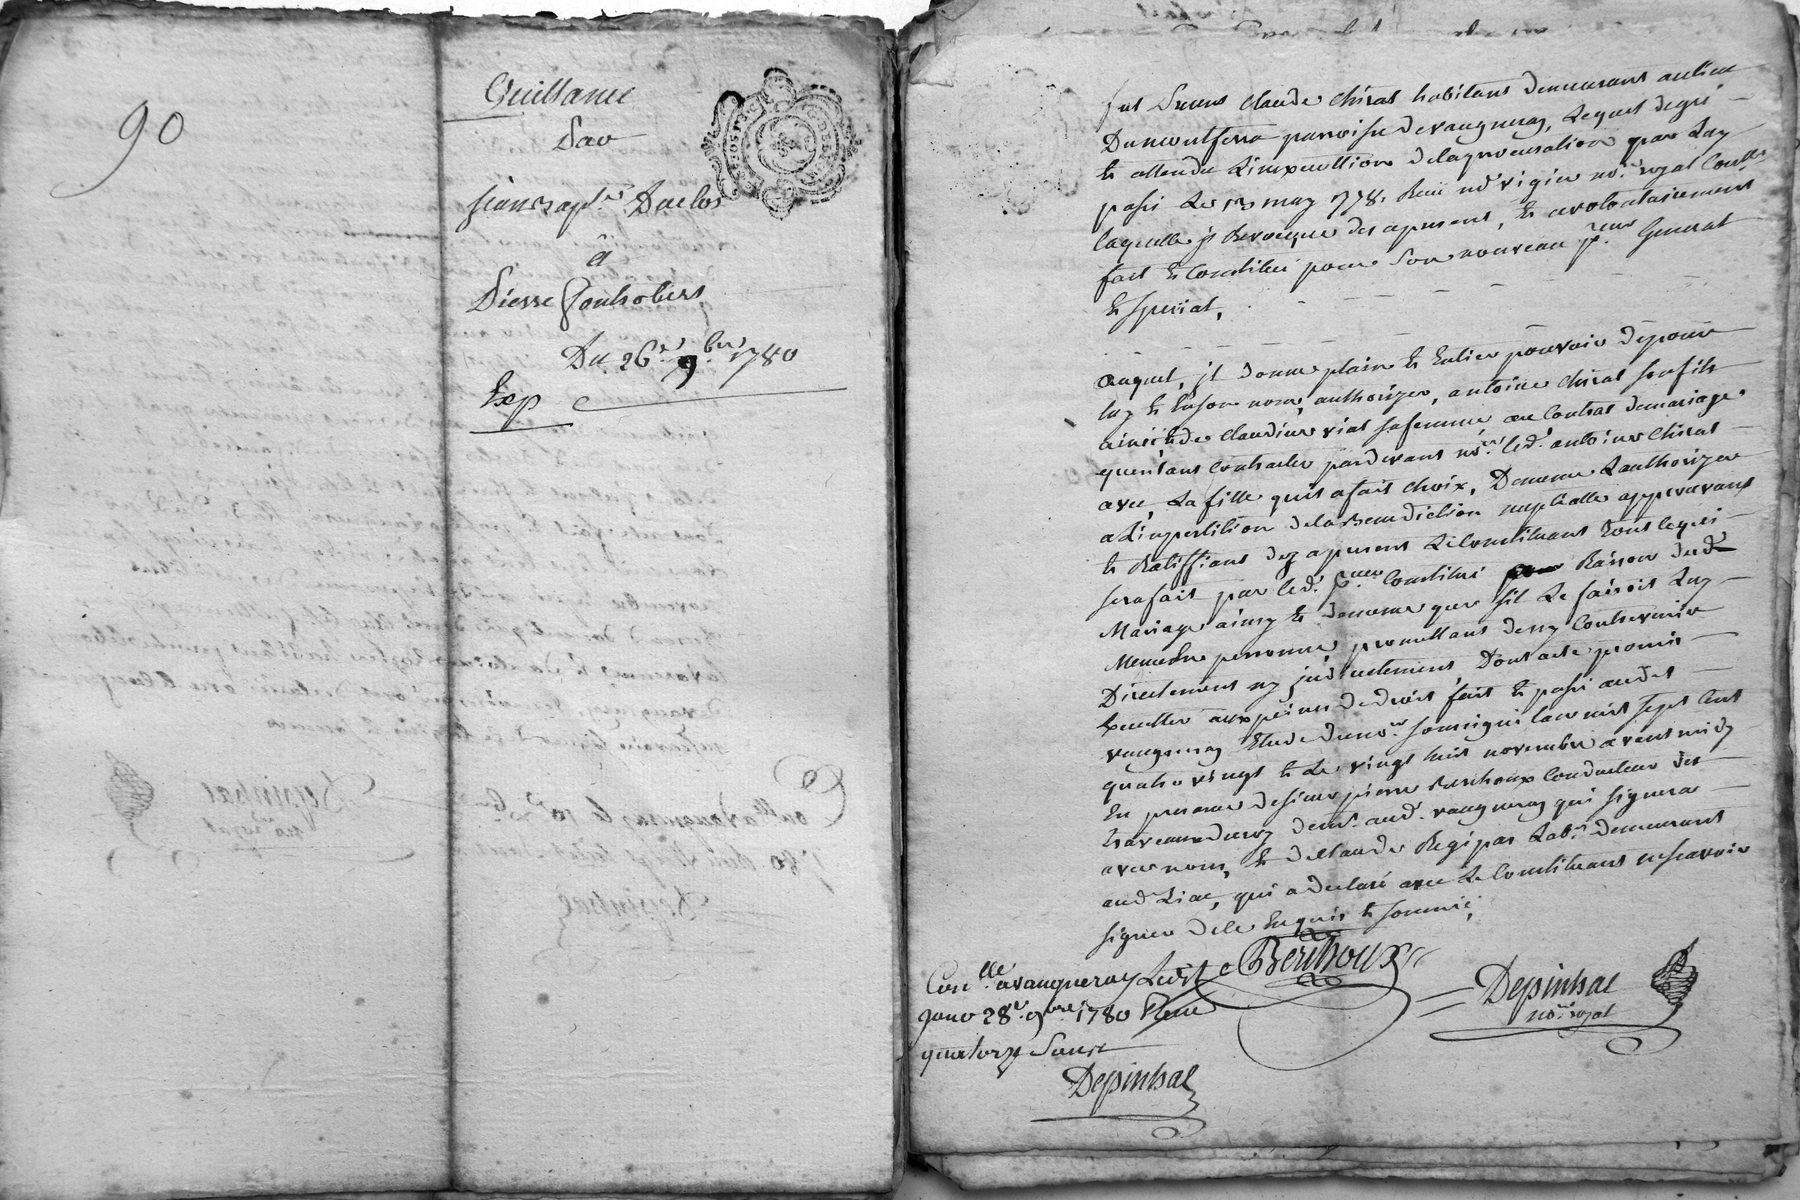 90
Quittance
Par
Jean bapt.e Duclos
à
Pierre Gouttobert
Du 26.e 9.bre 1780
Exp
fut Present Claude Chirat habitant demeurant au lieu
Dumontferra parroisse de vaugneray, Lequel de gré
Et attendu Linexecution de la procuration par Luy
passé Le 13 may 1778. Reçu nd vigier no.re royal Con.lle
laquelle jl Revocque des apresent, Et a volontairement
fait Et Constitué pour Son nouveau p.eur General
Et special,
auquel, jl donne plain Et Entier pouvoir de pour
luy Et En son nom, authorizer, antoine Chirat son fils
ainé Et de Claudine viat sa femme au Contrat de mariage
quentant Contracter pardevant no.re led. antoine Chirat
avec La fille quil a fait choix, Dememe Lauthorizer
a Limpertition de la Benediction nuptialle approuvant
Et Ratiffiant des apresent Le Constituant tout ce qui
sera fait par led. p.eur Constitué Raison dud.
Mariage ainsy Et dememe que sil Le faisoit Luy
Meme En personne, promettant de ny Contrevenir
Directement ny jndirectement Dont acte promis
Executter aux peines de droit fait Et passé aud.t
vaugneray Etude du no.re soussigné lan mil sept cent
quatre vingt Et Le vingt huit novembre avant midy
En presence de sieur pierre Berthoux Conducteur des
travaux du roy dem.t aud. vaugneray qui signera
avec nous, Et de Claude Regipas Lab.r demeurant
aud. Lieu, qui a declaré avec Le Constituant ne scavoir
signer de ce Enquis Et sommé,
Berthoux
Depinhac
no.re royal
Con.lle a vaugneray Ledit
jour 28.e 9.bre 1780 Reçu
quatorze Sous
Depinhac